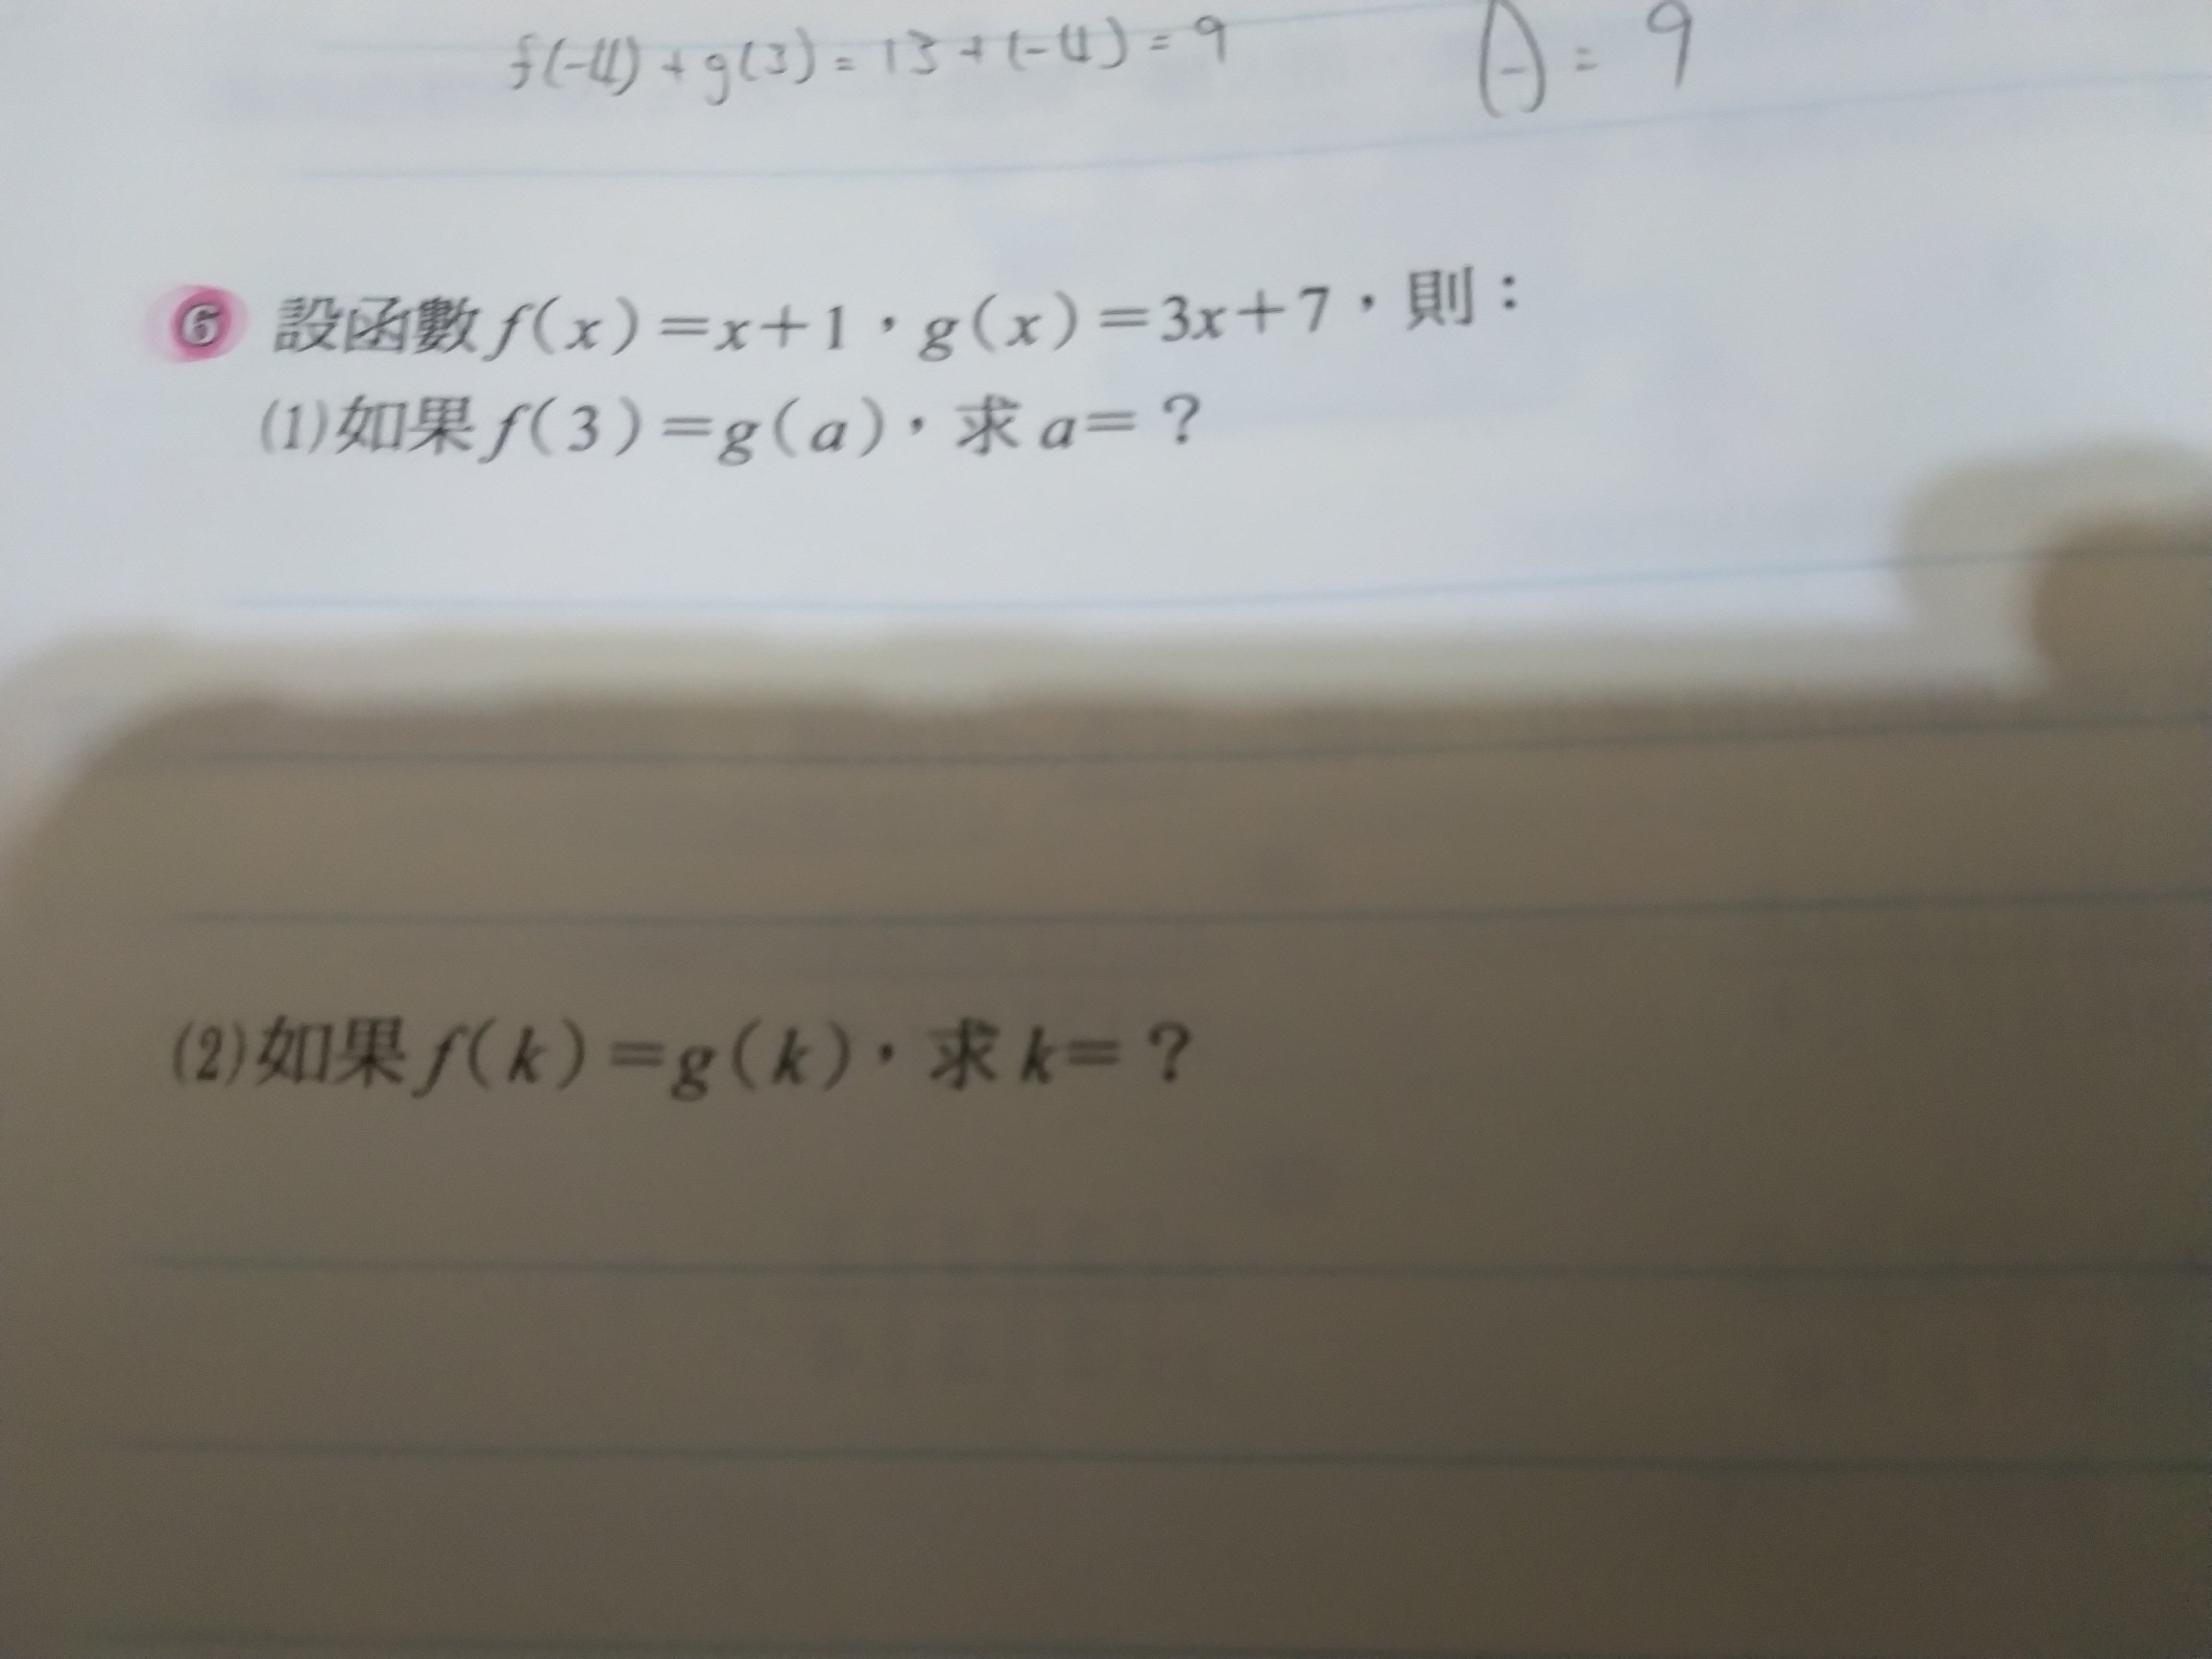 f(-4)+g(3)=13+(-4)=9 A=9
6 設函數f(x)=x+1，g(x)=3x+7，則：
(1)如果f(3)=g(a)，求a=？
(2)如果f(k)=g(k)，求k=？